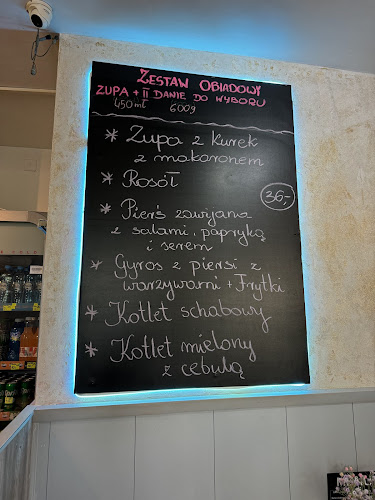 ZESTAW OBIADOWY
ZUPA + II DANIE DO WYBORU
450ml 600g
* Zupa z Kurek
z makaronem
* Rosół
36,-
* Pierś zawijana
z salami, papryką
i serem
* Gyros z piersi z
warzywami + Frytki
* Kotlet schabowy
* Kotlet mielony
z cebulą